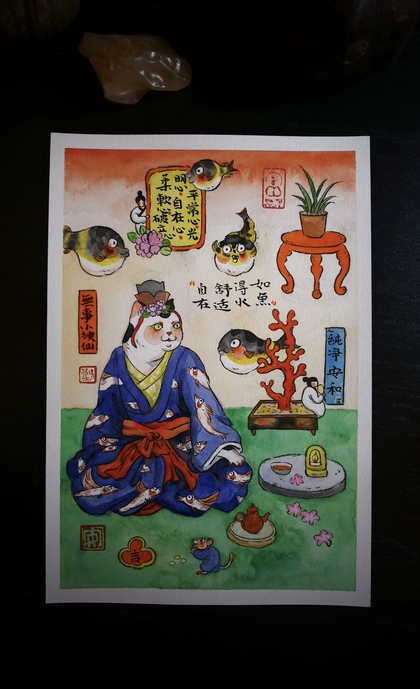 平常心光
明心。自在心。
柔軟心。破立心
“如魚
得水
舒适
自在”
無事小神仙
純淨安和
吉